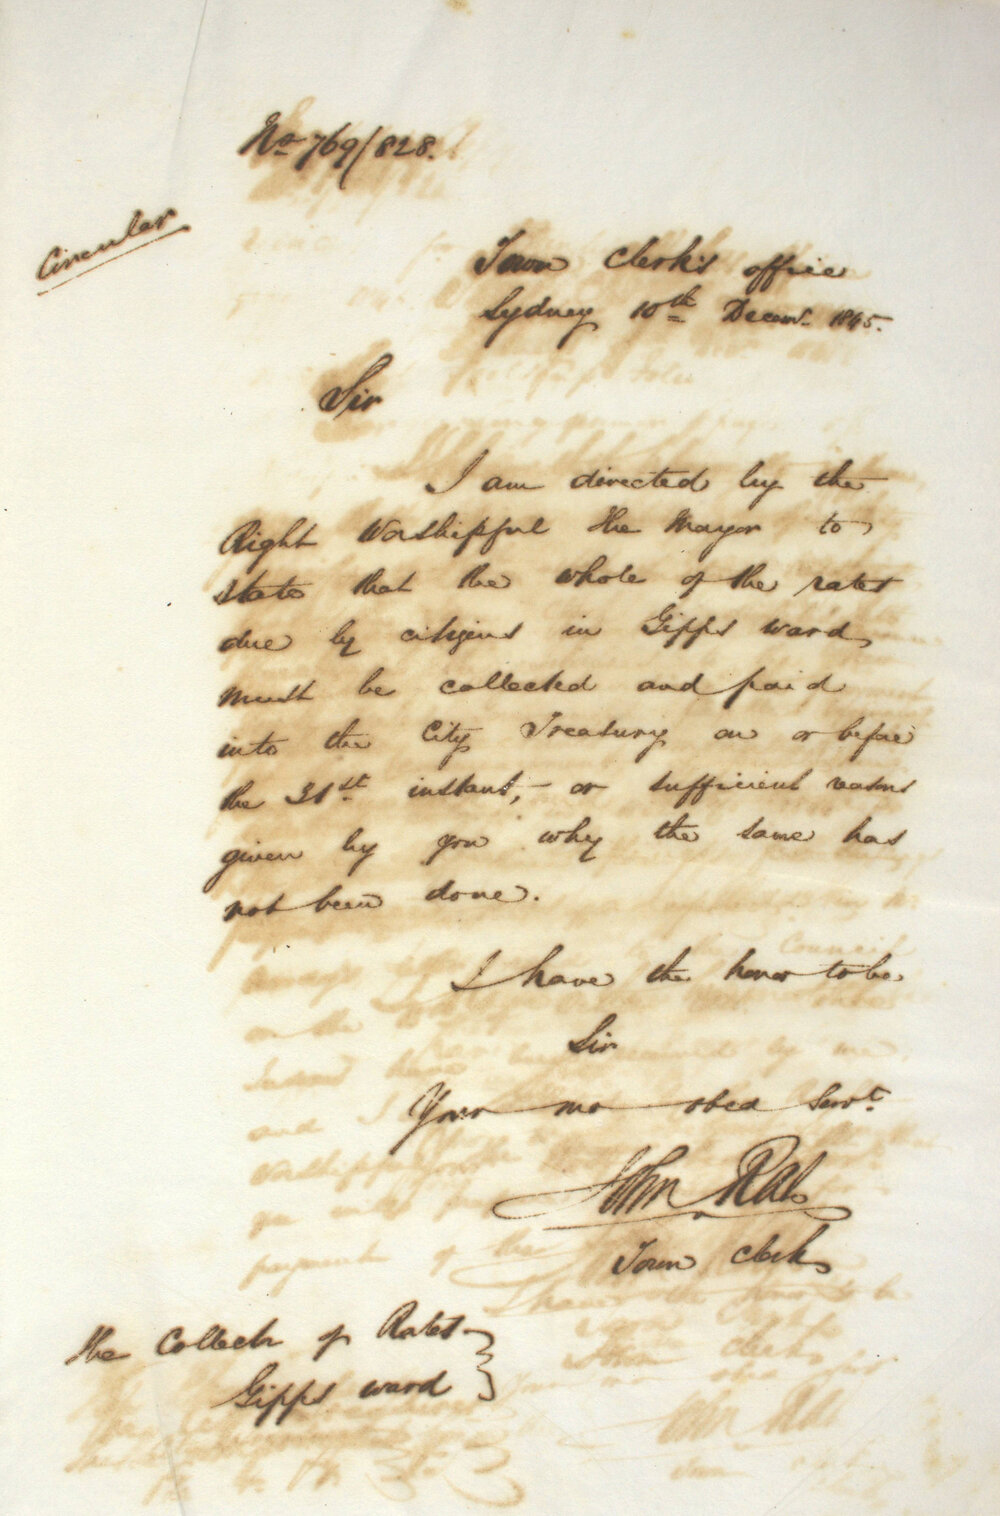 No 769/828.
Circular
Town Clerk's office
Sydney 10th Decemr. 1845.
Sir
I am directed by the
Right Worshipful the Mayor to
state that the whole of the rates
due by citizens in Gipps ward,
must be collected and paid
into the City Treasury on or before
the 31st instant, - or sufficient reasons
given by you why the same has
not been done.
I have the honor to be
Sir
Your mo obed Servt.
John Rae
Town Clerk
The Collectr of Rates
Gipps ward